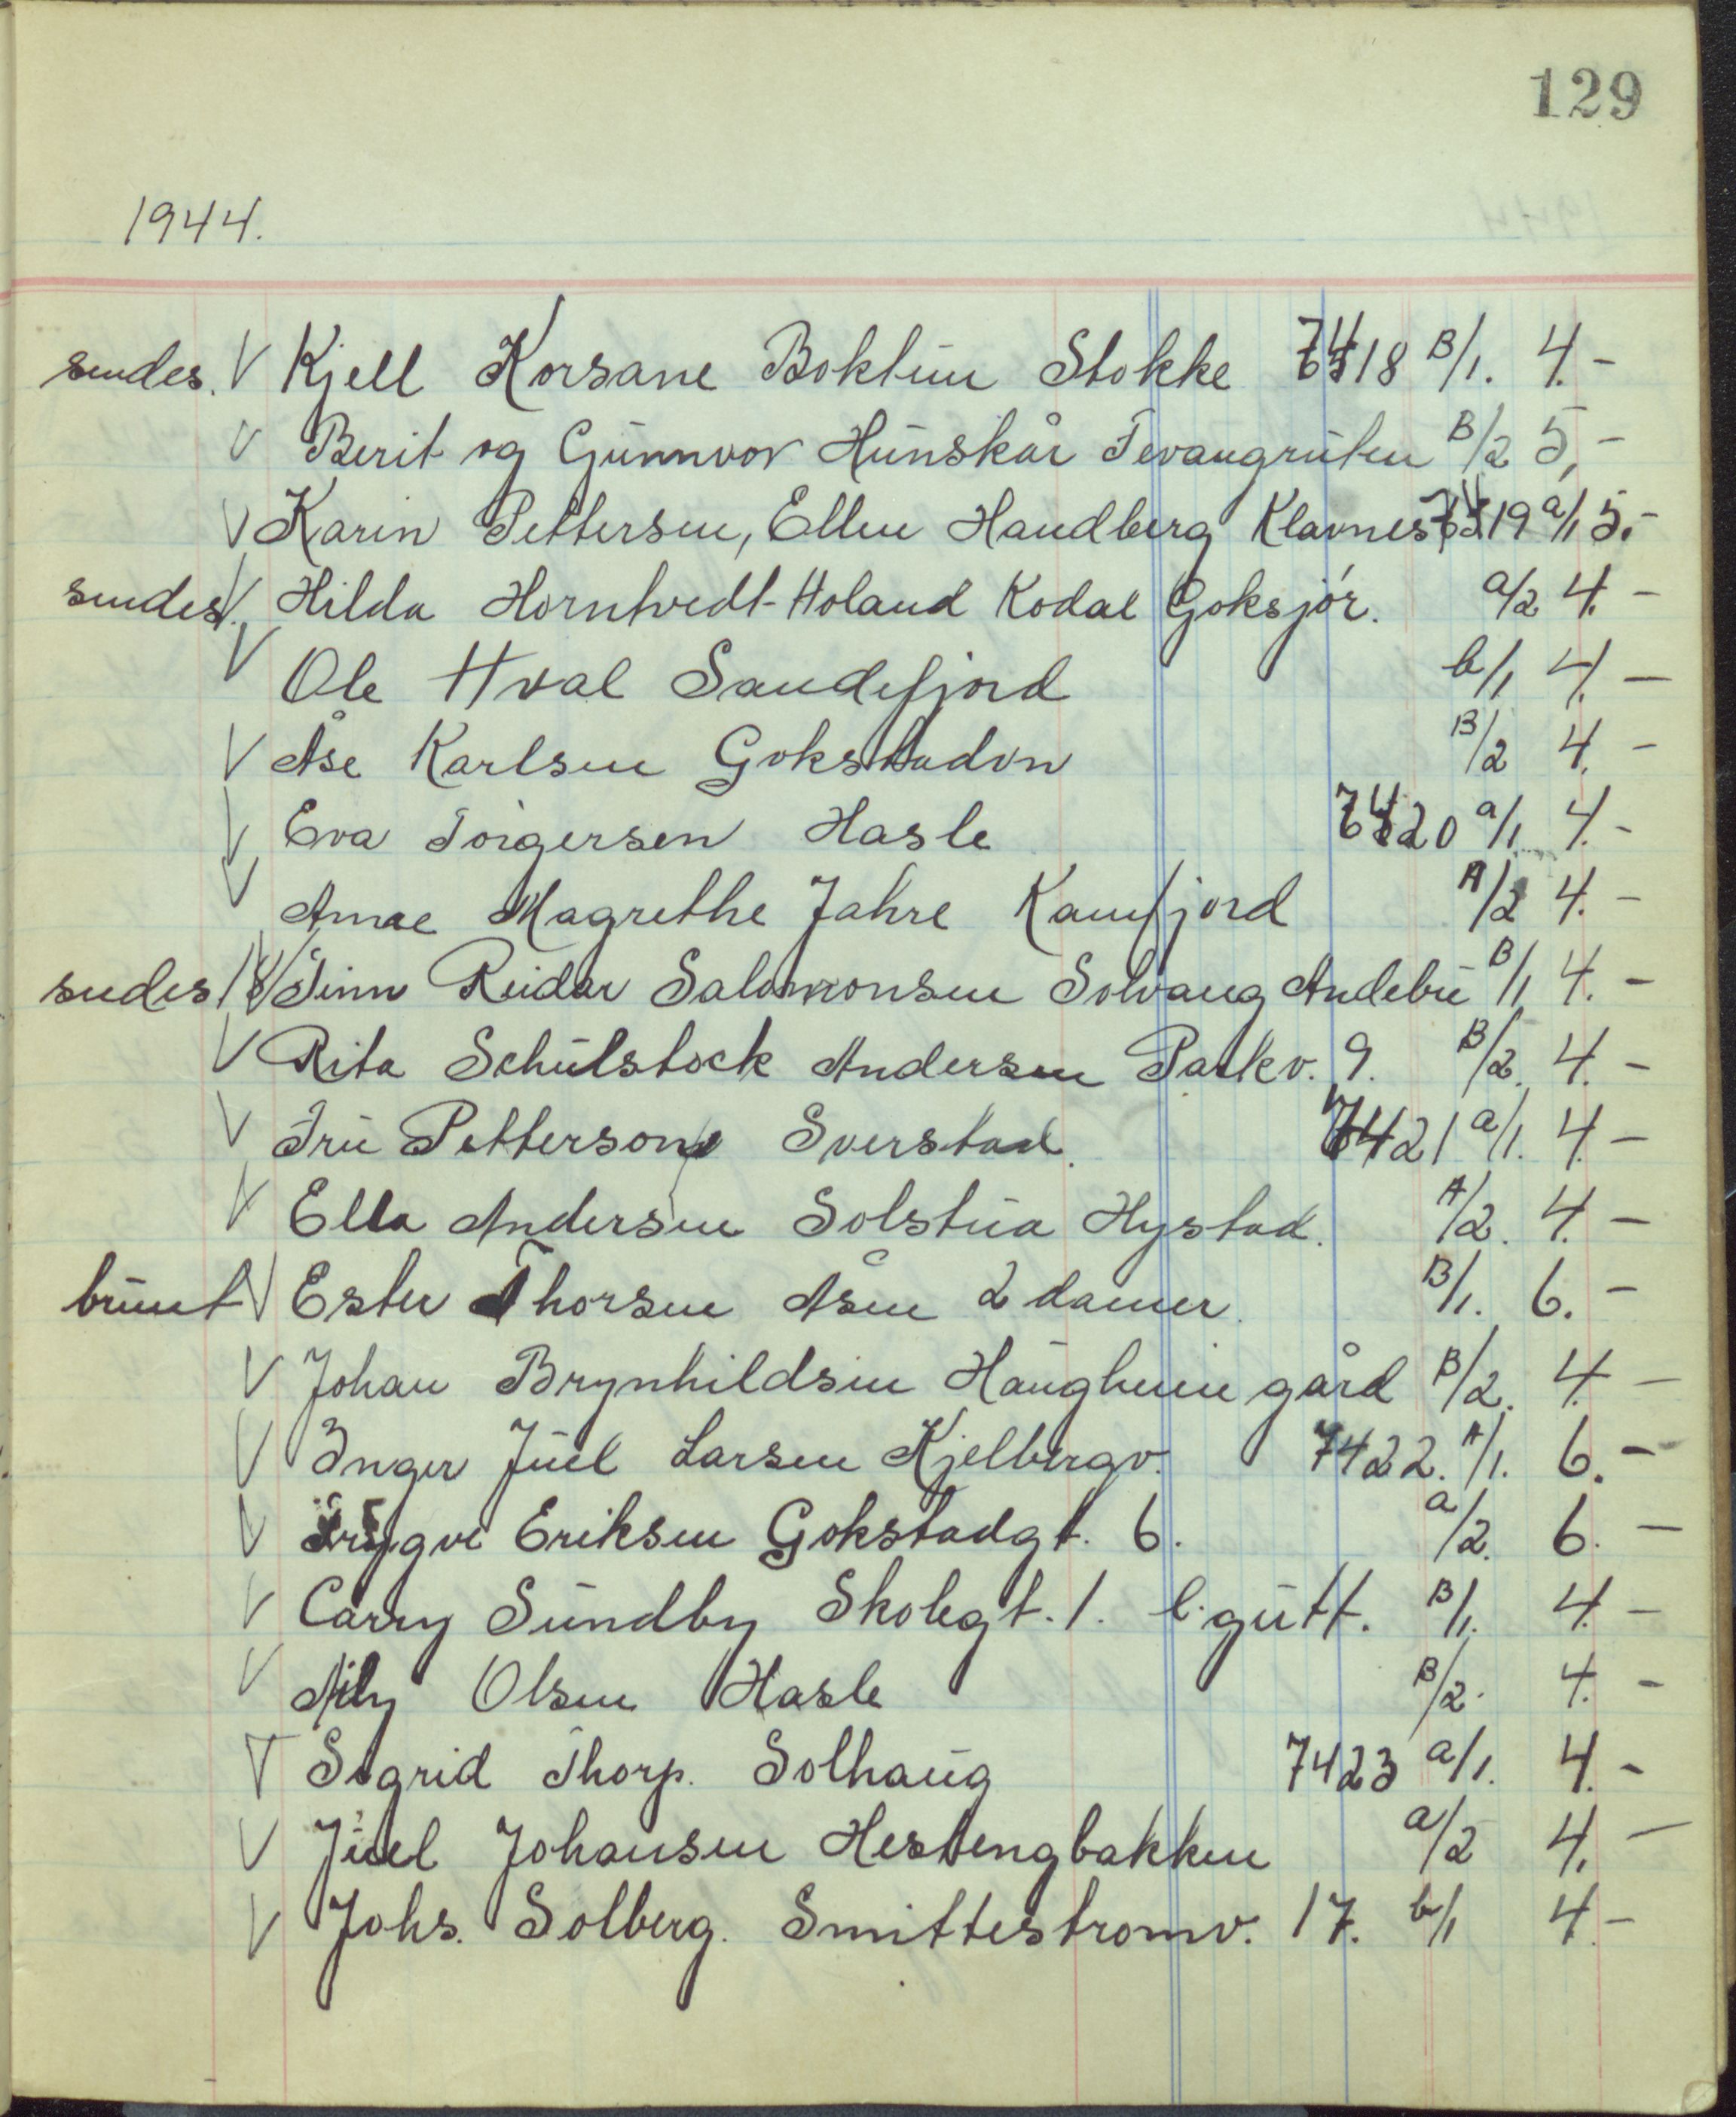 129
1944.
sendes. V Kjell Korsane Boktun Stokke 7418 B/1. 4.-
V Berit og Gunnvor Hunskår Tevangruten B/2 5,-
V Karin Pettersen, Ellen Handberg Klavnes 7419 a/1 5.-
sendes V. Hilda Horntvedt-Holand Kodal Goksjør. a/2 4.-
V Ole Hval Sandefjord b/1 4.-
V Åse Karlsen Gokstad B/2 4.-
V Eva Torgersen Hasle 7420 a/1 4.-
V Magrethe Jahre Kamfjord A/2 4.-
sendes V Finn Reidar Salomonsen Solvang Andebu B/1 4.-
V Rita Schulstock Andersen Parkv. 9. B/2. 4.-
V Fru Petterson Sverstad. 7421 a/1. 4.-
V Ella Andersen Solstua Hystad. A/2. 4.-
brunt V Ester Thorsen Åsen 2 damer. B/1. 6.-
V Johan Brynhildsen Haugheim gård B/2. 4.-
V Inger Juel Larsen Kjelbergv. 7422. A/1. 6.-
V Trygve Eriksen Gokstadgt. 6. a/2. 6.-
V Carry Sundby Skolegt. 1. l. gutt. B/1. 4.-
V Olsen Hasle B/2. 4.-
V Sigrid Thorp. Solhaug 7423 a/1. 4.-
V Juel Johansen Hestengbakken a/2 4.-
V Johs. Solberg. Smittestromv. 17. b/1 4.-